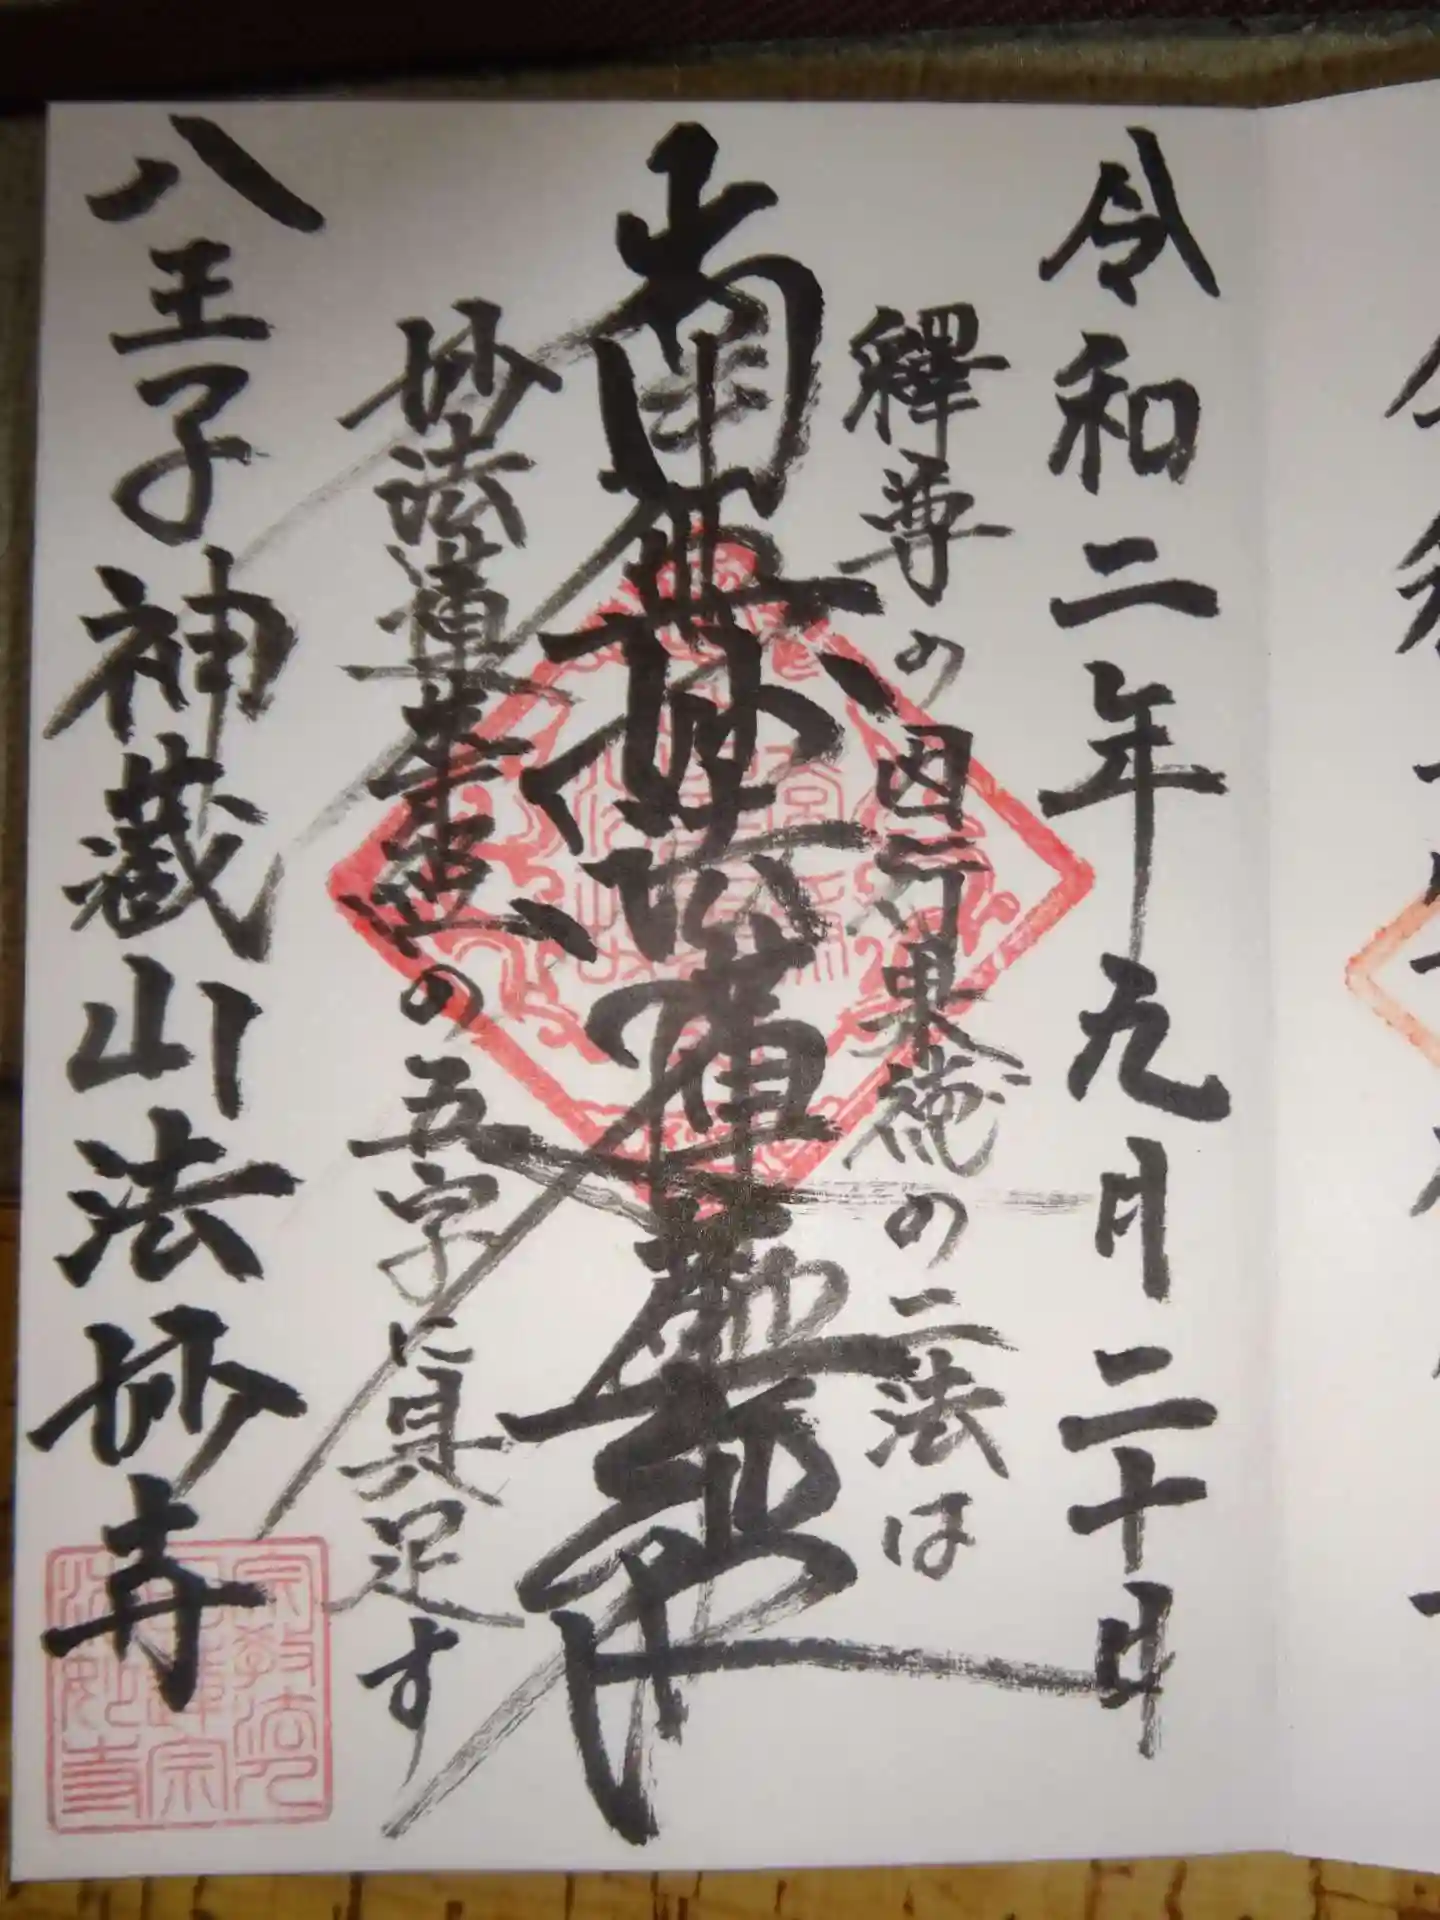 令和二年九月二十日
釋尊の因行果徳の二法は
南無妙法蓮華経
妙法蓮華経の五字に具足す
八王子神蔵山法妙寺
宗教法人
日蓮宗
法妙寺